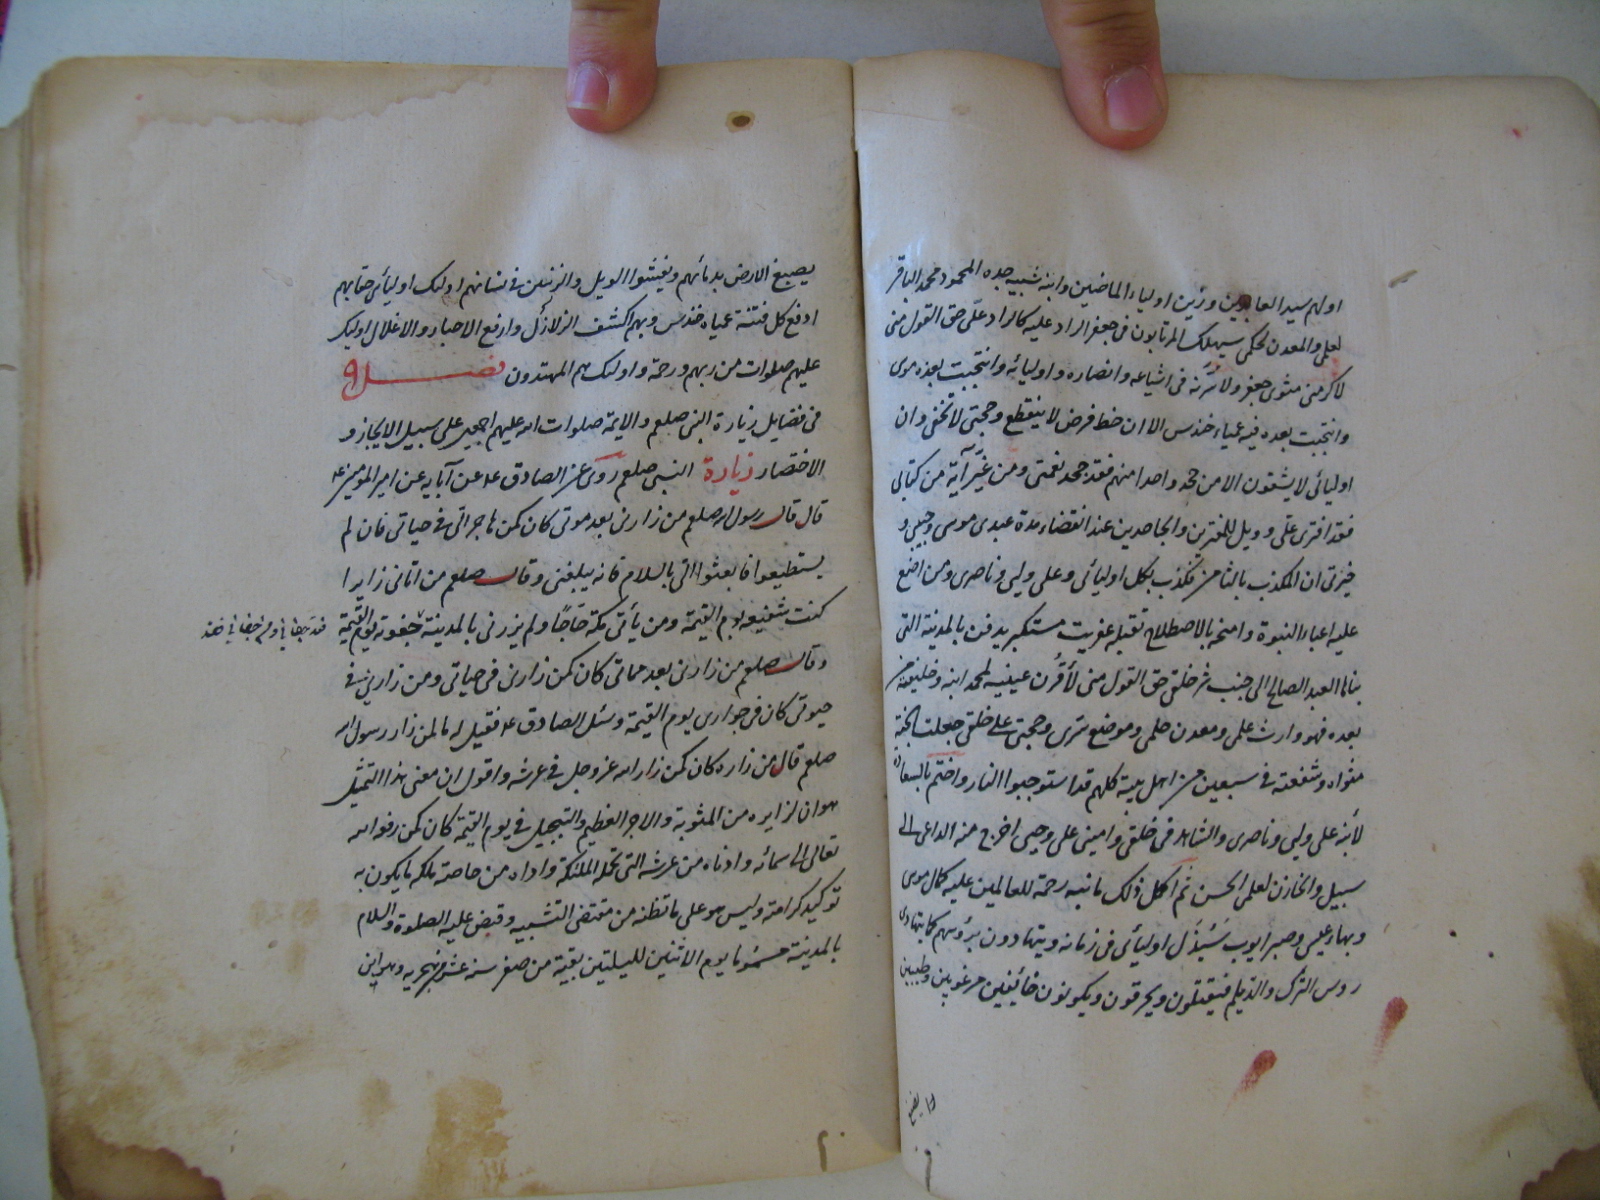 اولهم سيد العابدين وزين اولياء الماضين وابنه شبيه جده المحمود محمد الباقر
لعلمى والمعدن لحكمى سيهلك المرتابون فى جعفر الراد عليه كالراد علىّ حق القول منى
لاكرمن مثوى جعفر ولاسرّنه فى اشياعه وانصاره واوليائه وانتجبت بعده موسى
وانتجبت بعده فتنة عمياء حندس الا ان خط فرض لا ينقطع وحجتى لا تخفى وان
اوليائى لا يشقون الا من جحد واحدا منهم فقد جحد نعمتى ومن غيّر آية من كتابى
فقد افترى علىّ وويل للمفترين والجاحدين عند انقضاء مدة عبدى موسى وحبيبى و
خيرتى ان المكذب بالثامن مكذب بكل اوليائى وعلى وليى وناصرى ومن اضع
عليه اعباء النبوة وامنحه بالاضطلاع يقتله عفريت مستكبر يدفن بالمدينة التى
بناها العبد الصالح الى جنب شر خلقى حق القول منى لأقرّن عينيه لمحمد ابنه وخليفته من
بعده فهو وارث علمى ومعدن حلمى وموضع سرى وحجتى على خلقى جعلت الجنة
مثواه وشفعته فى سبعين من اهل بيته كلهم قد استوجبوا النار واختم بالسعادة
لأبنه على وليى وناصرى والشاهد فى خلقى وامينى على وحيى اخرج منه الداعى الى
سبيلى والخازن لعلمى الحسن ثم اكمل ذلك بابنه رحمة للعالمين عليه كمال موسى
وبهاء عيسى وصبر ايوب سَيُذَل اوليائى فى زمانه ويتهادون برؤسهم كما يتهادى
روس الترك والديلم فيقتلون ويحرقون ويكونون خائفين مرعوبين وجلين
يصبغ الارض بدمائهم ويفشوا الويل والرنين فى نسائهم اولئك اوليائى حقا بهم
ادفع كل فتنة عمياء حندس وبهم اكشف الزلازل وارفع الاصار والاغلال اولئك
عليهم صلوات من ربهم ورحمة واولئك هم المهتدون فصل
فى فضايل زيارة النبى صلعم والايمة صلوات الله عليهم اجمعين على سبيل الايجاز و
الاختصار زيارة النبى صلعم روى عن الصادق عه عن آبايه عن امير المومنين عه
قال قال رسول الله صلعم من زارنى بعد موتى كان كمن هاجر الىّ فى حياتى فان لم
يستطيعوا فابعثوا الىّ بالسلام فانه يبلغنى وقال صلعم من اتانى زايرا
كنت شفيعه يوم القيمة ومن يأتى مكة حاجّاً ولم يزرنى بالمدينة جفوته يوم القيمة
وقال صلعم من زارنى بعد مماتى كان كمن زارنى فى حياتى ومن زارنى فى
حيوتى كان فى جوارى يوم القيمة وسئل الصادق عه فقيل له ما لمن زار رسول الله
صلعم قال من زاره كان كمن زار الله عز وجل فى عرشه واقول ان معنى هذا التمثيل
هو ان لزايره من المثوبة والاجر العظيم والتبجيل فى يوم القيمة كان كمن رفعه الله
تعالى الى سمائه وادناه من عرشه التى تحمله الملئكة واراه من خاصة ملكه ما يكون به
توكيد كرامته وليس هو على ما تظنه من مقتضى التشبيه وقبض عليه الصلوة والسلام
بالمدينة مسموما يوم الاثنين لليلتين بقيتا من صفر سنة عشر من هجرية وهو ابن